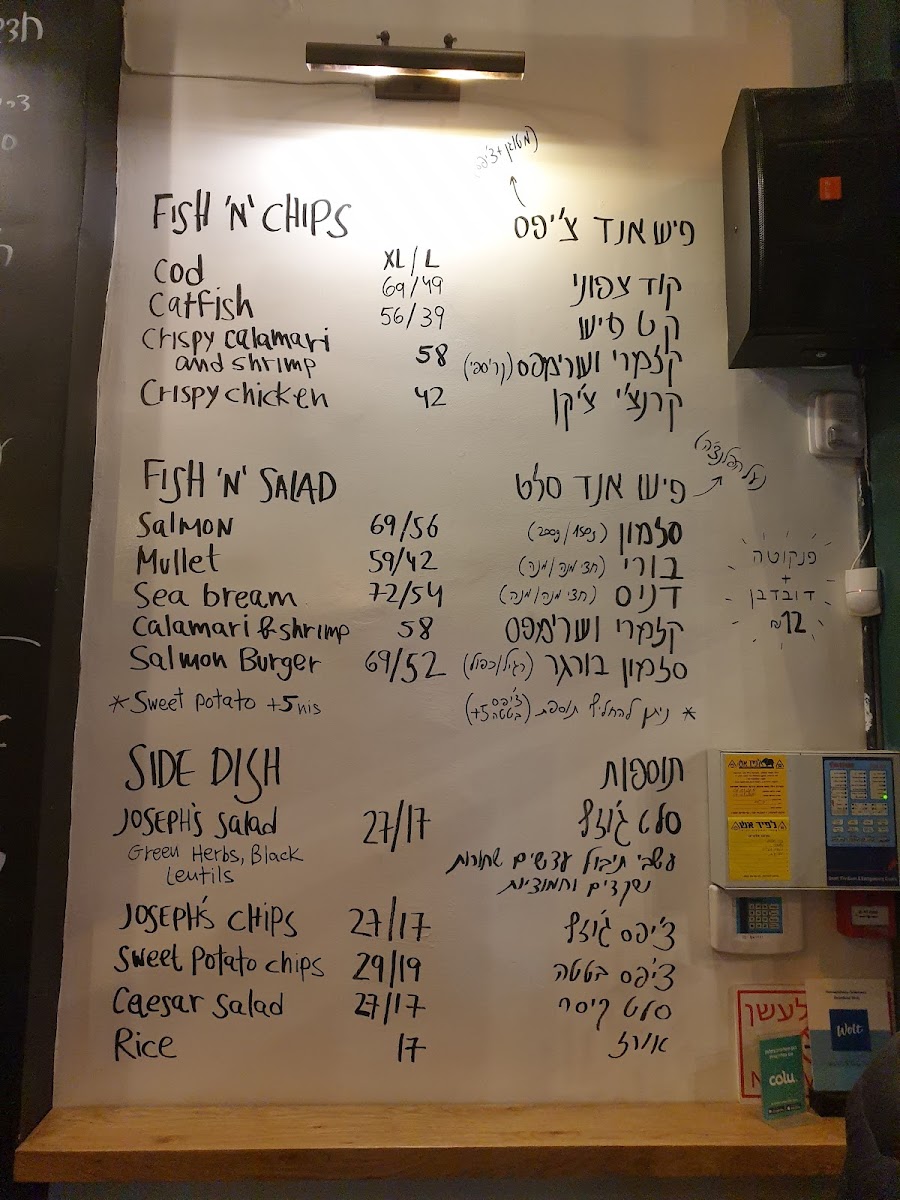 (מטוגן+צ'יפס)
FISH 'N' CHIPS פיש אנד צ'יפס
XL/L
Cod 69/49 קוד צפוני
Catfish 56/39 קט פיש
Crispy calamari
and shrimp 58 קלמרי ושרימפס (קריספי)
Crispy chicken 42 קרנצ'י צ'יקן
FISH 'N' SALAD פיש אנד סלט
(על הפלנצ'ה)
Salmon 69/56 סלמון (200g/150g)
Mullet 59/42 בורי (חצי מנה/מנה)
Sea bream 72/54 דניס (חצי מנה/מנה)
Calamari & shrimp 58 קלמרי ושרימפס
Salmon Burger 69/52 סלמון בורגר (רגיל/כפול)
* Sweet potato +5 nis * ניתן להחליף תוספת (צ'יפס בטטה +5)
פנקוטה
+
דובדבן
12₪
SIDE DISH תוספות
JOSEPH'S Salad 27/17 סלט ג'וזף
Green Herbs, Black
Lentils
עשבי תיבול עדשים שחורות
שקדים וחמוציות
JOSEPH'S CHIPS 27/17 צ'יפס ג'וזף
Sweet Potato chips 29/19 צ'יפס בטטה
Caesar Salad 27/17 סלט קיסר
Rice 17 אורז
לעשן
Wolt
colu.